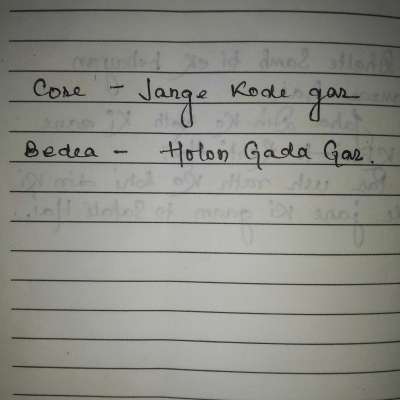 Cose - Jange Kode gas
Bedea - Holon Gada Gas.